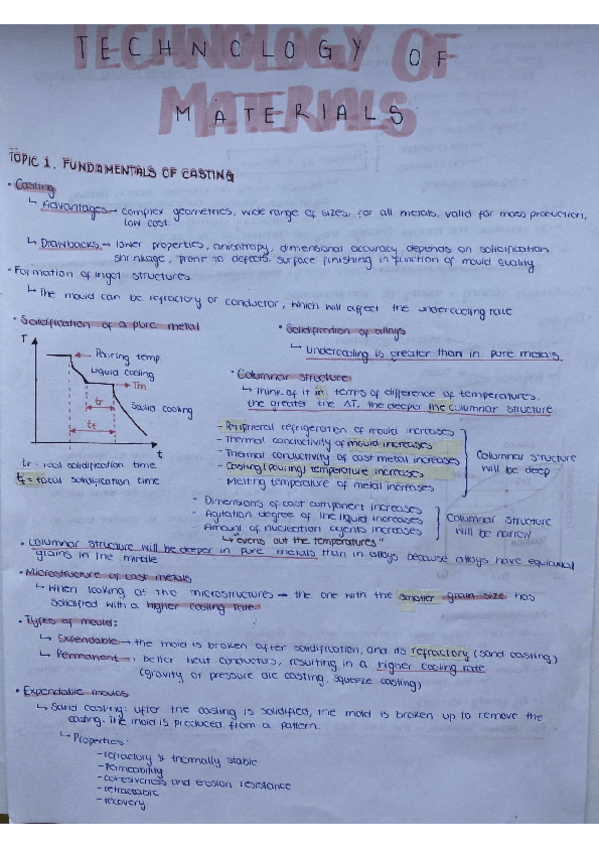 TECHNOLOGY OF
MATERIALS
TOPIC 1. FUNDAMENTALS OF CASTING
• Casting
↳ Advantages → complex geometries, wide range of sizes, for all metals, valid for mass production,
low cost.
↳ Drawbacks → lower properties, anisotropy, dimensional accuracy depends on solidification
shrinkage, prone to defects, surface finishing in function of mould quality.
• Formation of ingot structures
↳ The mould can be refractory or conductor, which will affect the undercooling rate
• Solidification of a pure metal
• Solidification of alloys
↳ Undercooling is greater than in pure metals.
T
Pouring temp.
Liquid cooling
Tm
tr
Solid cooling
tt
t
tr = local solidification time
tt = total solidification time
• Columnar structure
↳ Think of it in terms of difference of temperatures.
the greater the ΔT, the deeper the columnar structure.
- Peripheral refrigeration of mould increases
- Thermal conductivity of mould increases
- Thermal conductivity of cast metal increases
- Casting (pouring) temperature increases
- Melting temperature of metal increases
Columnar structure
will be deep
- Dimensions of cast component increases
- Agitation degree of the liquid increases
- Amount of nucleation agents increases
↳ "evens out the temperatures"
Columnar structure
will be narrow
• Columnar structure will be deeper in pure metals than in alloys because alloys have equiaxial
grains in the middle
• Microstructure of cast metals
↳ When looking at the microstructures → the one with the smaller grain size has
solidified with a higher cooling rate.
• Types of mould:
↳ Expendable → the mold is broken after solidification, and its refractory (sand casting)
↳ Permanent → better heat conductors, resulting in a higher cooling rate
(gravity or pressure die casting, squeeze casting)
• Expendable moulds
↳ Sand casting: after the casting is solidified, the mold is broken up to remove the
casting. The mold is produced from a pattern.
↳ Properties:
- refractory & thermally stable
- Permeability
- cohesiveness and erosion resistance
- retractable
- recovery